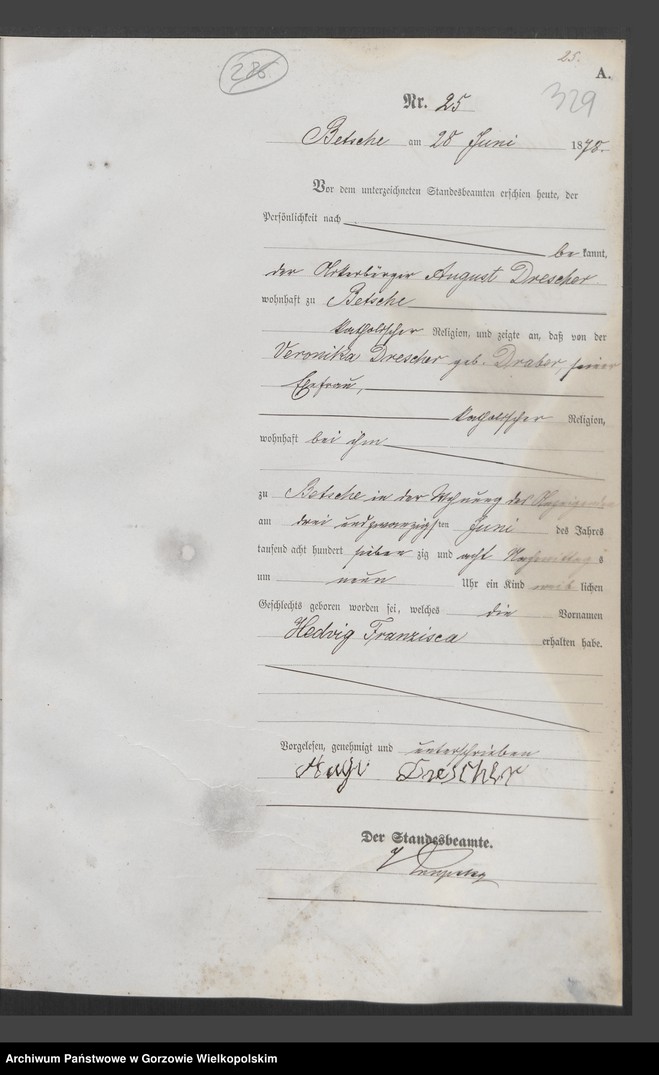 25.
286.
A.
Nr. 25
329
Betsche am 28 Juni 1878.
Vor dem unterzeichneten Standesbeamten erschien heute, der
Persönlichkeit nach
be kannt,
der Ackerbürger August Drescher
wohnhaft zu Betsche
katholischer Religion, und zeigte an, daß von der
Veronika Drescher geb. Draber, seiner
Ehefrau,
katholischer Religion,
wohnhaft bei ihm
zu Betsche in der Wohnung des Anzeigenden
am drei und zwanzigsten Juni des Jahres
tausend acht hundert sieben zig und acht Nachmittag s
um neun Uhr ein Kind weib lichen
Geschlechts geboren worden sei, welches die Vornamen
Hedvig Franzisca erhalten habe.
Vorgelesen, genehmigt und unterschrieben
Drescher
Der Standesbeamte.
Archiwum Państwowe w Gorzowie Wielkopolskim